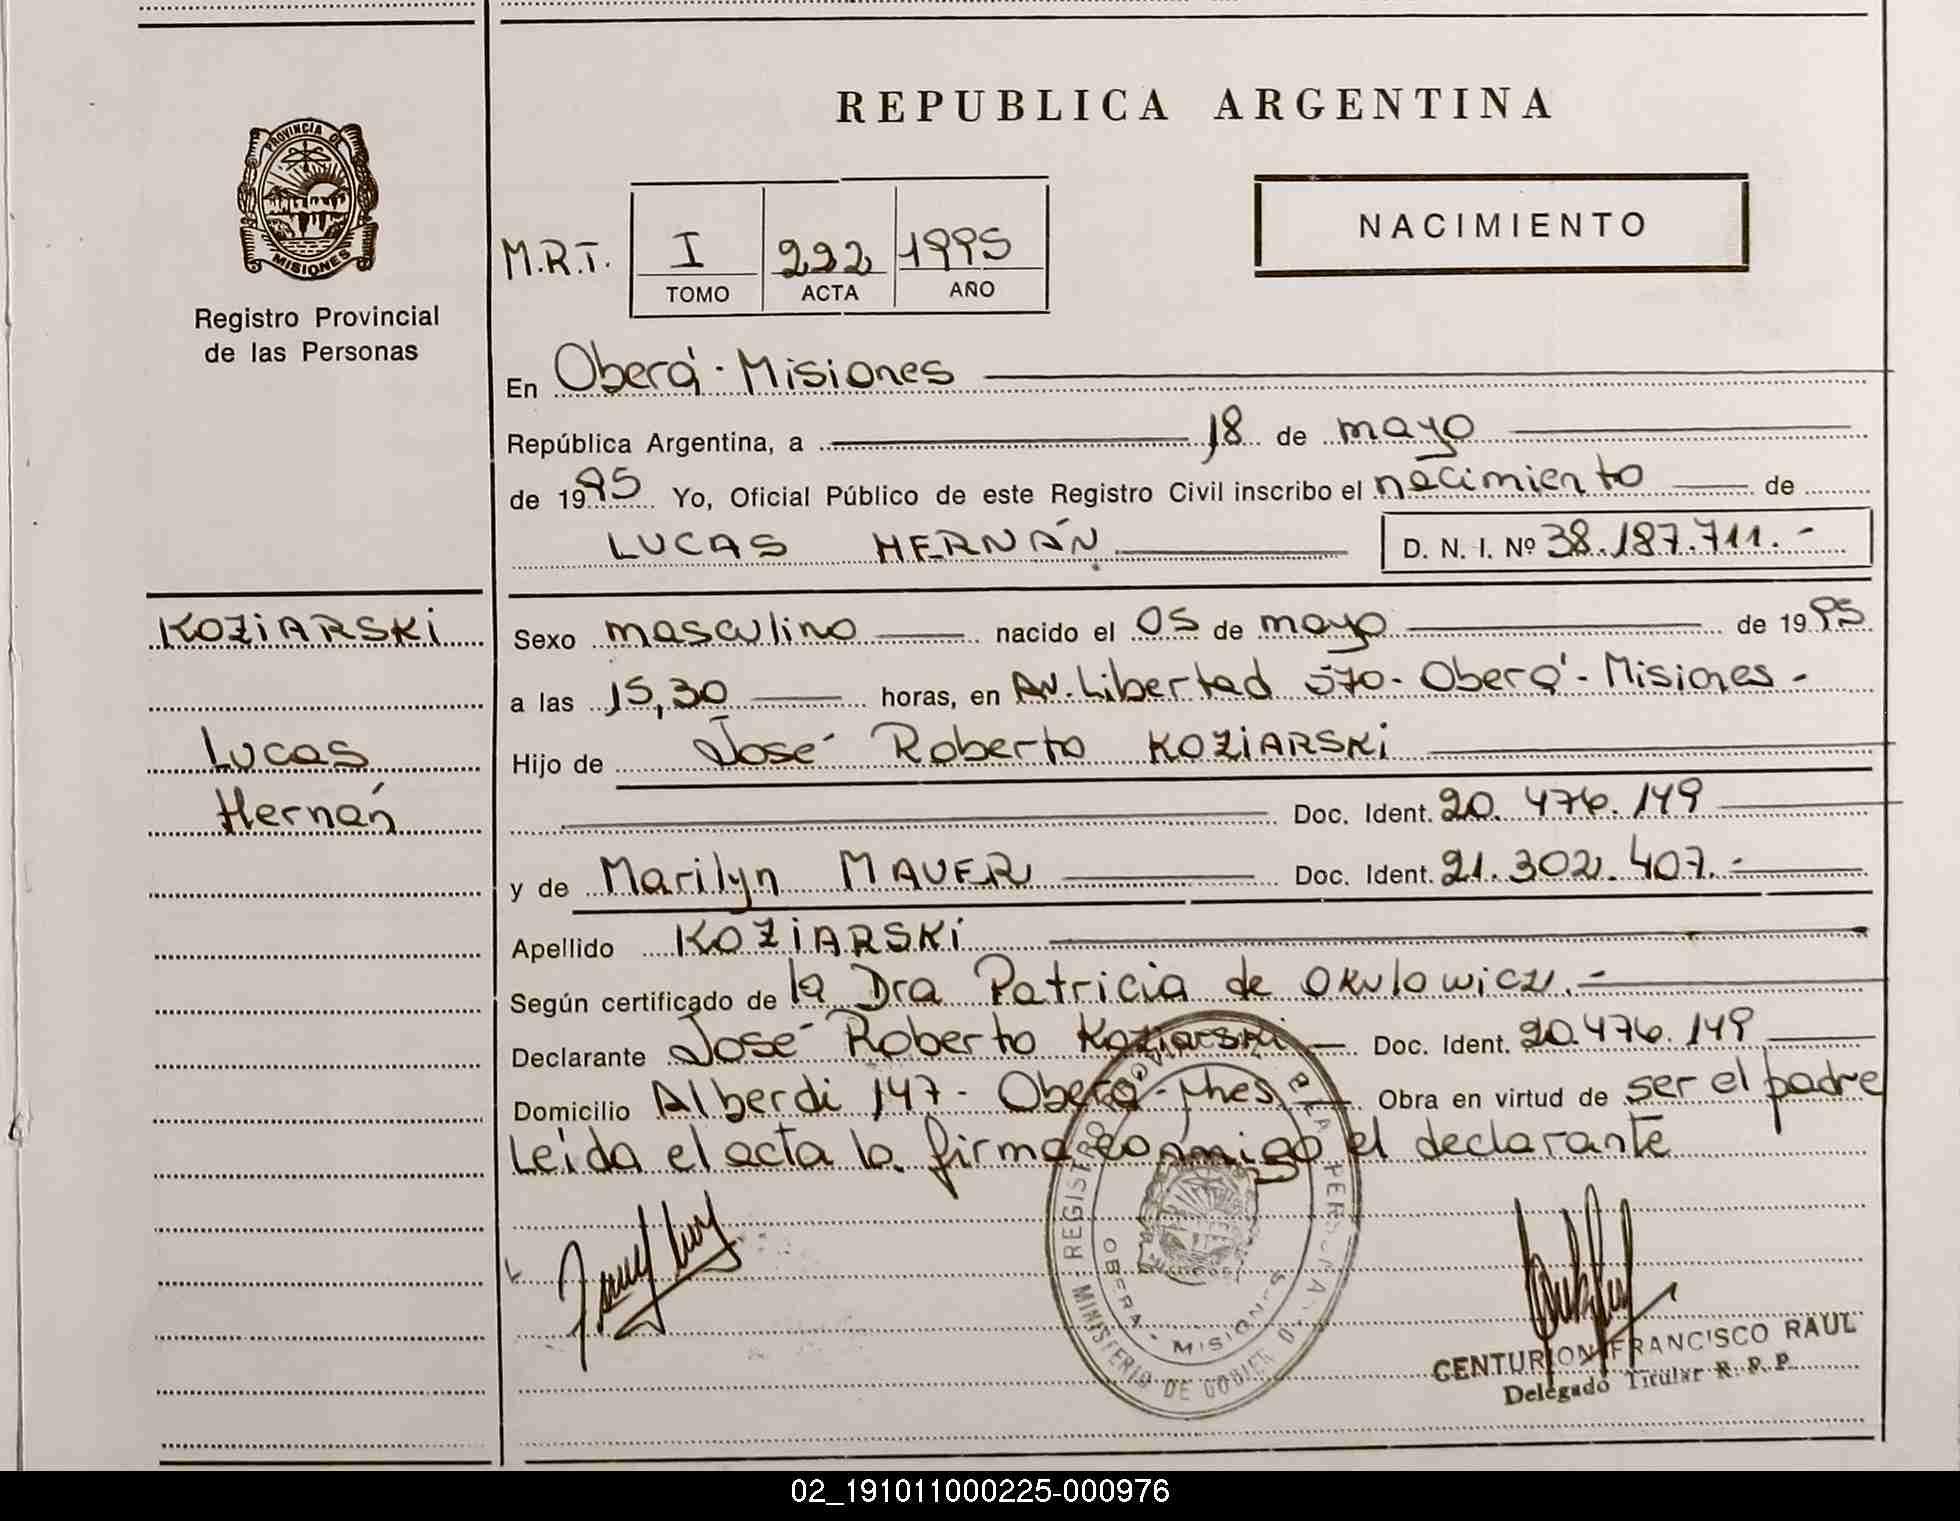 REPUBLICA ARGENTINA
PROVINCIA DE
MISIONES
Registro Provincial
de las Personas
NACIMIENTO
M.R.T. I 222 1995
TOMO ACTA AÑO
En Oberá - Misiones
República Argentina, a 18 de mayo
de 1995 Yo, Oficial Público de este Registro Civil inscribo el nacimiento de
LUCAS HERNÁN D. N. I. Nº 38.187.711.-
KOZiARSKi
Lucas
Hernán
Sexo masculino nacido el 05 de mayo de 1995
a las 15,30 horas, en Av. Libertad 570 - Oberá - Misiones -
Hijo de José Roberto KOZiARSKi
Doc. Ident. 20.476.149
y de Marilyn MAUER Doc. Ident. 21.302.407.-
Apellido KOZiARSKi
Según certificado de la Dra Patricia de Okulowicz.-
Declarante José Roberto Koziarski Doc. Ident. 20.476.149
Domicilio Alberdi 147 - Oberá - Mnes Obra en virtud de ser el padre
Leida el acta la firma conmigo el declarante
REGISTRO PROVINCIAL DE LAS PERSONAS
OBERA - MISIONES
MINISTERIO DE GOBIERNO
CENTURION FRANCISCO RAUL
Delegado Titular R. P. P.
02_191011000225-000976